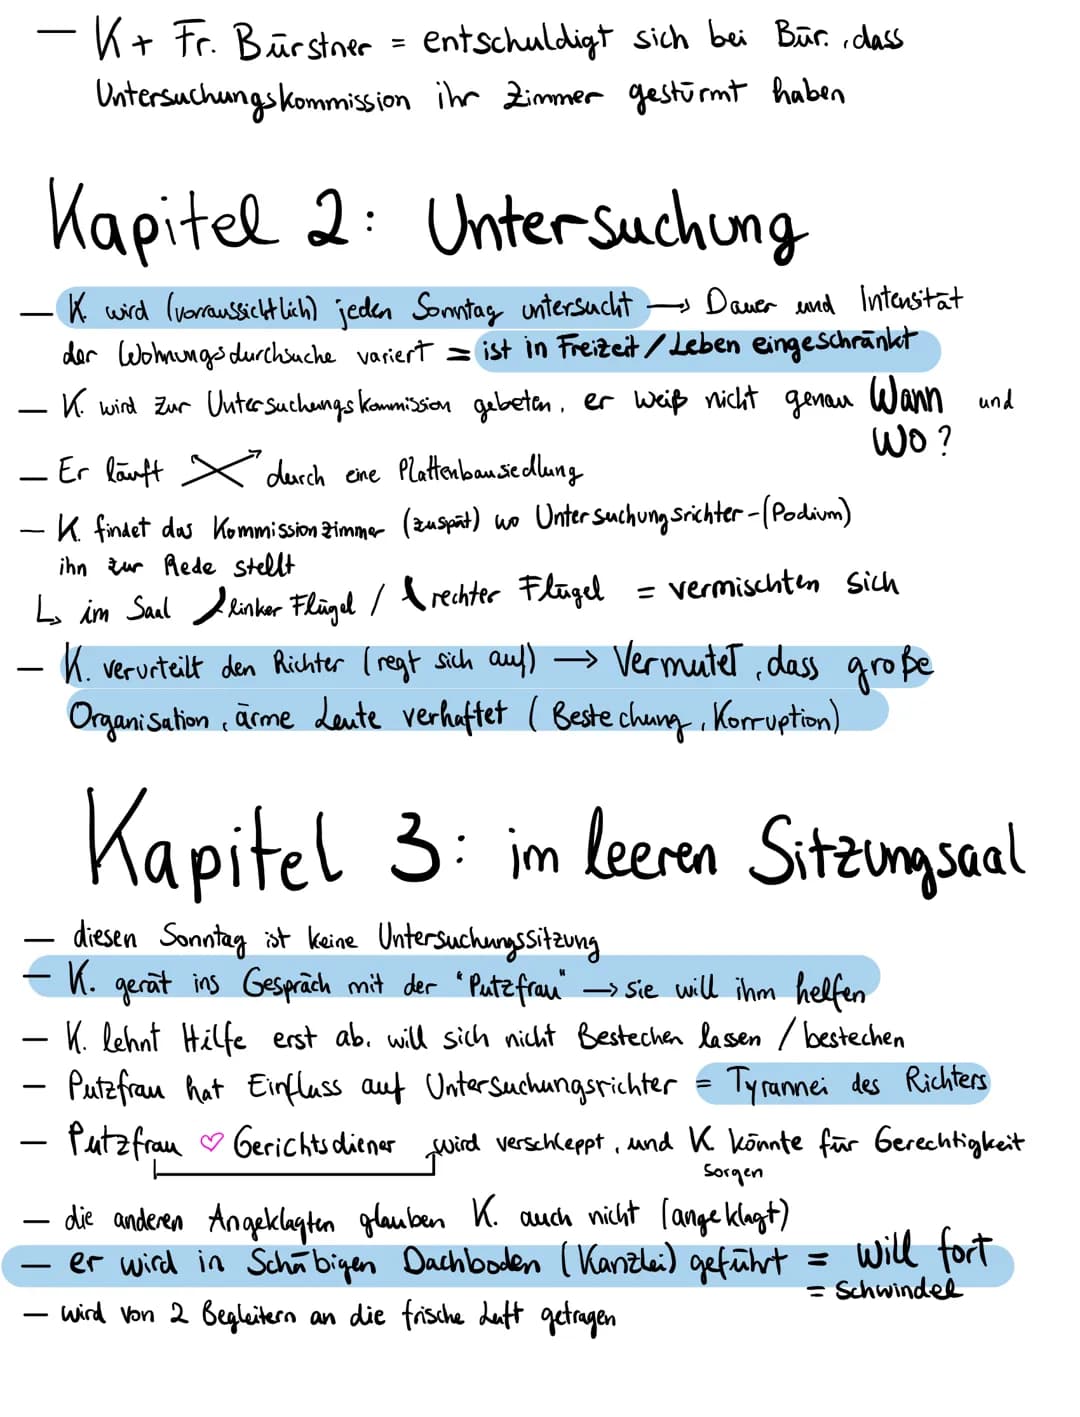 — K + Fr. Bürstner = entschuldigt sich bei Bür., dass
Untersuchungskommission ihr Zimmer gestürmt haben
Kapitel 2: Untersuchung
— K. wird (vorraussichtlich) jeden Sonntag untersucht → Dauer und Intensität
der Wohnungsdurchsuche variert = ist in Freizeit / Leben eingeschränkt
— K. wird zur Untersuchungskommission gebeten, er weiß nicht genau Wann und
Wo?
— Er läuft durch eine Plattenbausiedlung
— K. findet das Kommissionzimmer (zuspät) wo Untersuchungsrichter - (Podium)
ihn zur Rede stellt
↳ im Saal linker Flügel / rechter Flügel = vermischten sich
— K. verurteilt den Richter (regt sich auf) → Vermutet, dass große
Organisation, ärme Leute verhaftet (Bestechung, Korruption)
Kapitel 3: im leeren Sitzungsaal
— diesen Sonntag ist keine Untersuchungssitzung
— K. gerät ins Gespräch mit der "Putzfrau" → sie will ihm helfen
— K. lehnt Hilfe erst ab, will sich nicht Bestechen lassen / bestechen
— Putzfrau hat Einfluss auf Untersuchungsrichter = Tyrannei des Richters
— Putzfrau ♡ Gerichtsdiener wird verschleppt, und K. könnte für Gerechtigkeit
sorgen
— die anderen Angeklagten glauben K. auch nicht (angeklagt)
— er wird in Schäbigen Dachboden (Kanzlei) geführt = will fort
= Schwindel
— wird von 2 Begleitern an die frische Luft getragen